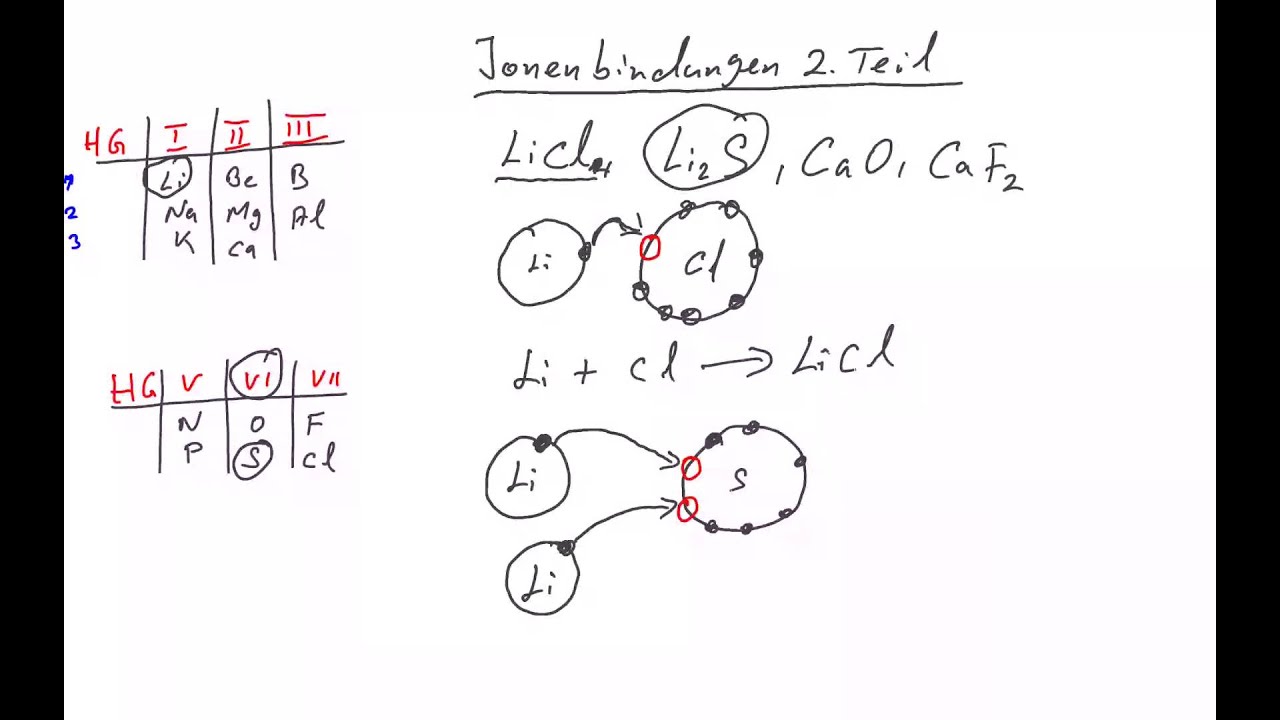 Jonenbindungen 2. Teil
LiCl, Li₂S, CaO, CaF₂
HG I II III
1 Li Be B
2 Na Mg Al
3 K Ca
Li Cl
Li + Cl → LiCl
HG V VI VII
N O F
P S Cl
Li S
Li